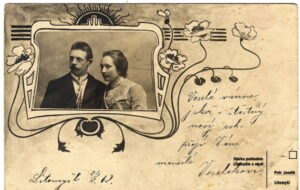 Veselé vánoce
jakož i šťastný
nový rok
přejí Vám
manželé
Litomyšl
Sbírka pohlednic
Litomyšle a okolí
Petr Jonák
Litomyšl